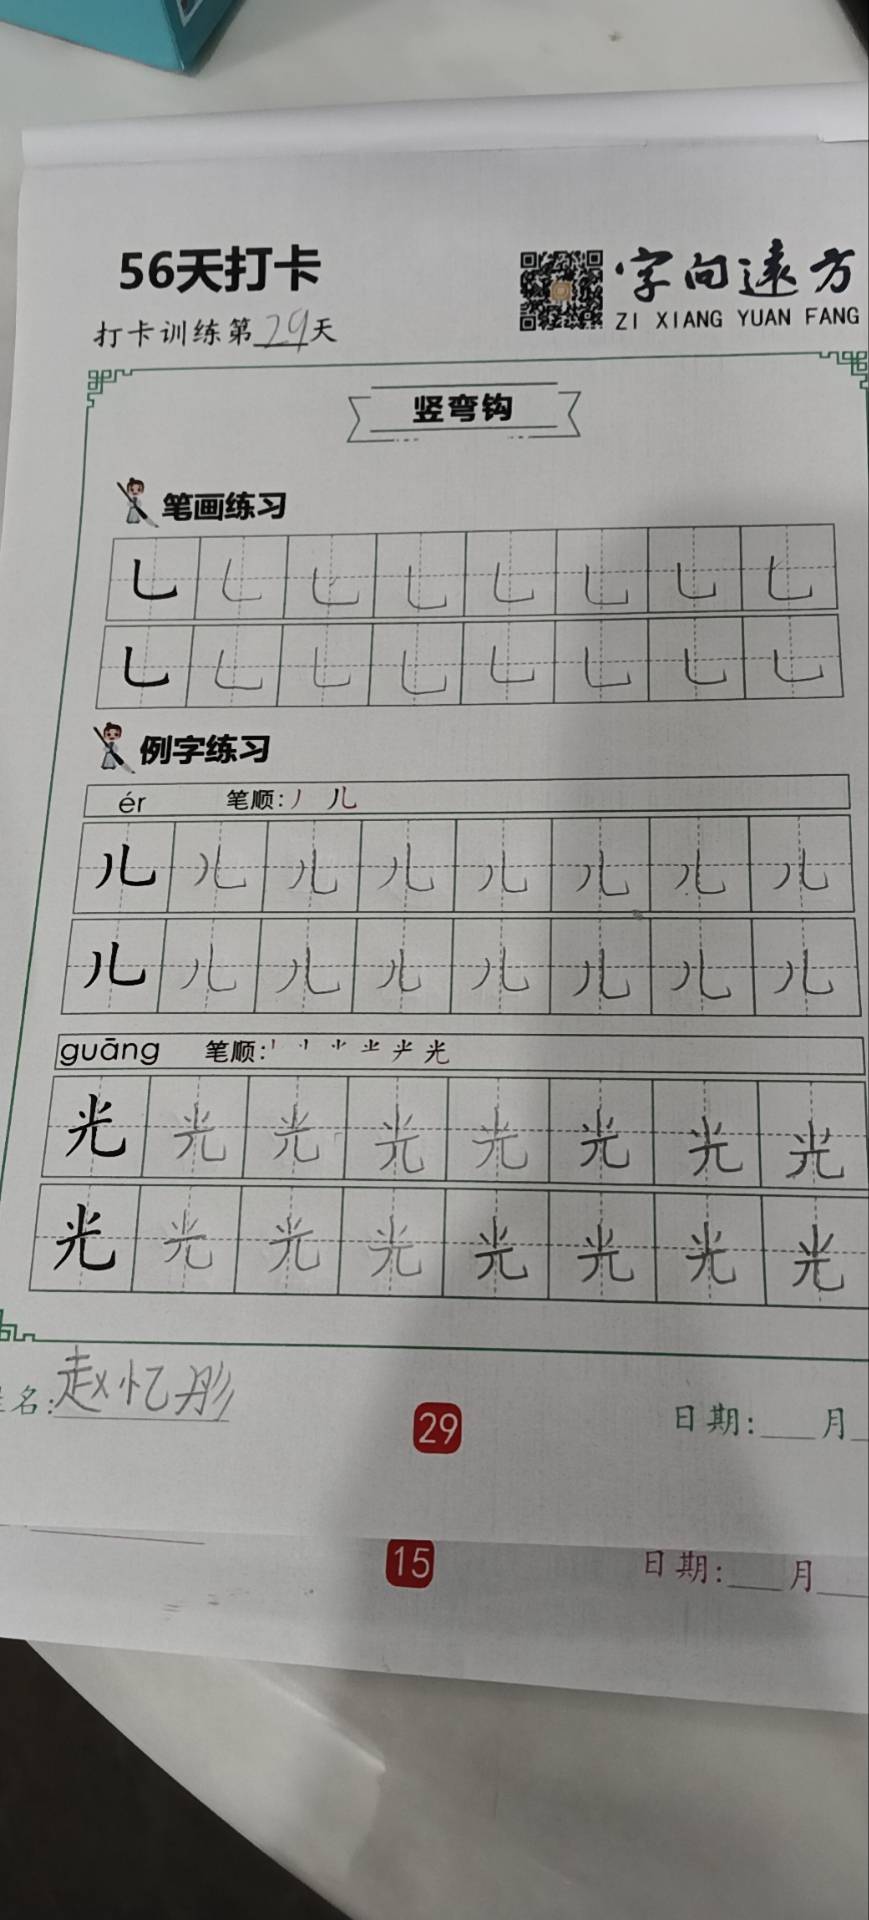 56天打卡
字向远方
打卡训练第29天
ZI XIANG YUAN FANG
竖弯钩
笔画练习
乚 乚 乚 乚 乚 乚 乚 乚
乚 乚 乚 乚 乚 乚 乚 乚
例字练习
ér 笔顺: 丿 儿
儿 儿 儿 儿 儿 儿 儿 儿
儿 儿 儿 儿 儿 儿 儿 儿
guāng 笔顺: 光
光 光 光 光 光 光 光 光
光 光 光 光 光 光 光 光
名: 赵忆彤 29 日期: 月
15 日期: 月